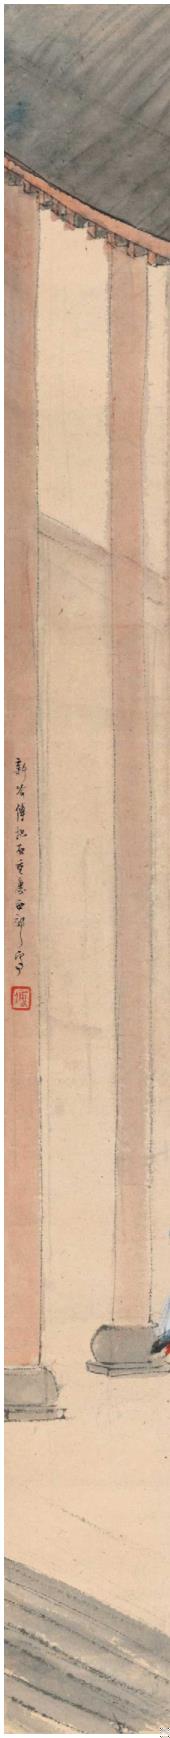 新喻傅抱石重慶西郊寫
傅